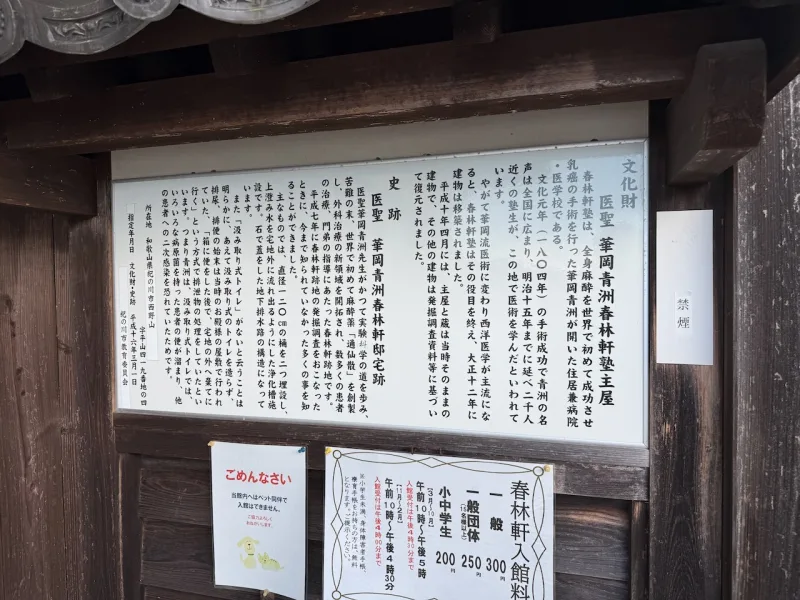 文化財
医聖 華岡青洲春林軒塾主屋
春林軒塾は、全身麻酔を世界で初めて成功させ
乳癌の手術を行った華岡青洲が開いた住居兼病院
・医学校である。
文化元年(一八〇四年)の手術成功で青洲の名
声は全国に広まり、明治十五年までに延べ二千人
近くの塾生が、この地で医術を学んだといわれて
います。
やがて華岡流医術に変わり西洋医学が主流にな
ると、春林軒塾はその役目を終え、大正十二年に
建物は移築されました。
平成十年四月には、主屋と蔵は当時そのままの
建物で、その他の建物は発掘調査資料等に基づい
て復元されました。
史跡
医聖 華岡青洲春林軒邸宅跡
医聖華岡青洲先生がかつて実験科学の道を歩み、
苦難の末、世界で初めて麻酔薬「通仙散」を創製
し、外科治療の新領域を開拓され、数多くの患者
の治療、門弟の指導にあたった春林軒跡地です。
平成七年に春林軒跡地の発掘調査をおこなった
ときに、今まで知られていなかった多くの事を知
ることができました。
主なものでは、直径一二〇㎝の桶を二つ埋設し、
上澄み水を宅地外に流れ出るようにした浄化槽施
設です。石で蓋をした地下排水路の構造になって
います。
また「汲み取り式トイレ」がないと云うことは
明らかに、あえて汲み取り式のトイレを造らず、
排尿、排便の始末は当時のお殿様の屋敷で行われ
ていた、「箱に便をした後で、宅地の外へ棄てに
行く」という方式で排泄物の処理をしていたとい
います。つまり青洲は、汲み取り式トイレでは、
いろいろな病原菌を持った患者の便が溜まり、他
の患者への二次感染を恐れていたためです。
所在地 和歌山県紀の川市西野山
字平山四一九番地の四
指定年月日 文化財・史跡 平成十六年三月一日
紀の川市教育委員会
禁煙
ごめんなさい
当館内へはペット同伴で
入館はできません。
春林軒入館料
一般 300円
一般団体 250円
小中学生 200円
【3月~10月】
午前10時~午後5時
入館受付は午後4時30分まで
【11月~2月】
午前10時~午後4時30分
入館受付は午後4時00分まで
※小学生未満、身体障害者手帳、
療育手帳をお持ちの方は、無料
となります。ご提示ください。